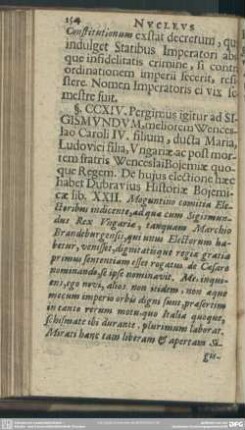 154 NVCLEVS
Constitutionum exstat decretum, qu
indulget Statibus Imperatori abs
que infidelitatis crimine, si contr
ordinationem imperii fecerit, resi
stere. Nomen Imperatoris ei vix se
mestre fuit.
§. CCXIV. Pergimus igitur ad SI-
GISMVNDVM, meliorem Wences-
lao Caroli IV. filium, ducta Maria,
Ludovici filia, Vngariæ ac post mor-
tem fratris Wenceslai Bojemiæ quo-
que Regem. De hujus electione hæc
habet Dubravius Historiæ Bojemi-
cæ lib. XXII. Moguntino comitia Ele-
ctoribus indicente, ad quæ cum Sigismun-
dus Rex Vngariæ, tanquam Marchio
Brandeburgensis, qui unus Electorum ha-
betur, venisset, dignitatisque regiæ gratia
primus sententiam esset rogatus de Cæsare
nominando, se ipse nominavit. Me, inqui-
ens, ego novi, alios non itidem, non æque
mecum imperio orbis digni sunt, præsertim
in tanto rerum motu, quo Italia quoque,
schismate ibi durante, plurimum laborat.
Mirati hanc tam liberam & apertam Si-
gis-